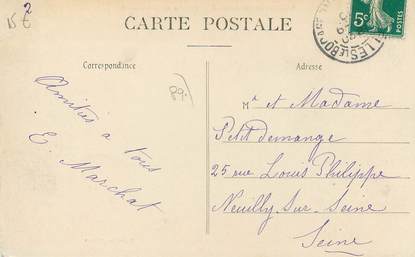 15€
2
CARTE POSTALE
5c
LES LE BOCAGE
Correspondance
Adresse
89
Amitiés à tous
E. Marchat
Mr et Madame
Petitdemange
25 rue Louis Philippe
Neuilly sur Seine
Seine